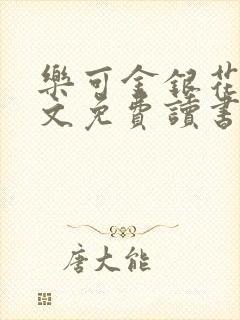 樂可金銀花
文免費讀書
唐大能